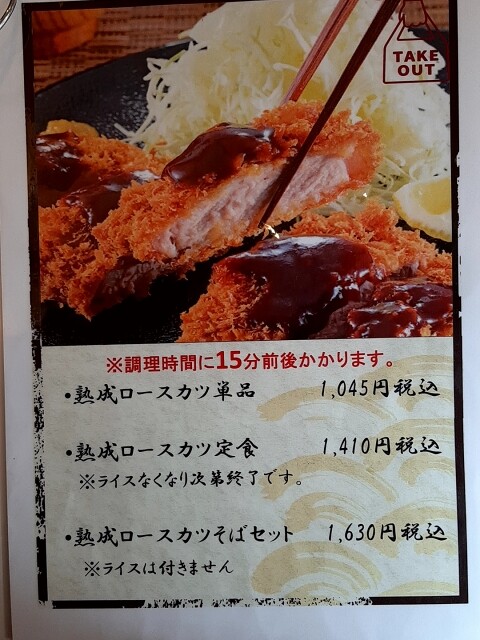 TAKE
OUT
※調理時間に15分前後かかります。
・熟成ロースカツ単品 1,045円税込
・熟成ロースカツ定食 1,410円税込
※ライスなくなり次第終了です。
・熟成ロースカツそばセット 1,630円税込
※ライスは付きません